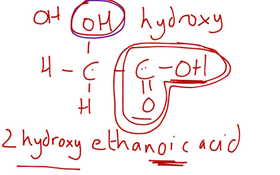 OH OH hydroxy
H – C – C – OH
H O
2 hydroxy ethanoic acid